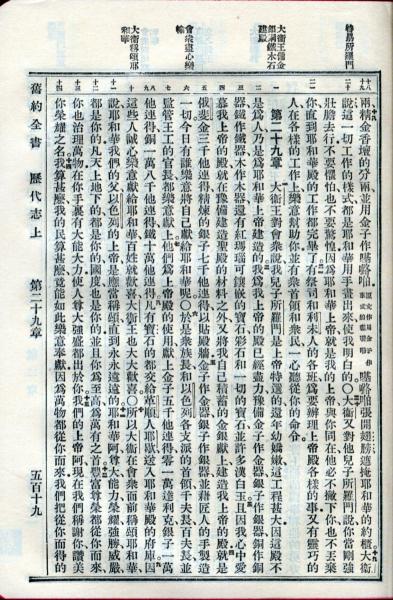 大衛王備金銀銅鐵木石建殿
會衆盡心樂輸
大衛稱頌耶和華
兩精金香壇的分兩並用金子作嘰嚕咟嘰嚕咟張開翅膀遮掩耶和華的約櫃大衛
說這一切工作的樣式都是耶和華用手畫出來使我明白的○大衛又對他兒子所羅門說你當剛強
壯膽去行不要懼怕也不要驚惶因爲耶和華上帝就是我的上帝與你同在他必不撇下你也不丟棄
你直到耶和華殿的工作都完畢了有祭司和利未人的各班爲要辦理上帝殿各樣的事又有靈巧的
人在各樣的工作上樂意幫助你並有衆首領和衆民一心聽從你的命令
第二十九章 大衛王對會衆說我兒子所羅門是上帝特選的還年幼嬌嫩這工程甚大因這殿不
是爲人乃是爲耶和華上帝建造的我爲我上帝的殿已經盡力豫備金子作金器銀子作銀器銅作銅
器鐵作鐵器木作木器還有紅瑪瑙可鑲嵌的寶石彩石和一切的寶石並許多漢白玉且因我心中愛
慕我上帝的殿就在豫備建造聖殿的材料之外又將我自己積蓄的金銀獻上建造我上帝的殿就是
俄斐金三千他連得精煉的銀子七千他連得以貼殿牆金子作金器銀子作銀器並藉匠人的手製造
一切今日有誰樂意將自己獻給耶和華呢於是衆族長和以色列各支派的首領千夫長百夫長並
監管王工的官長都樂意獻上他們爲上帝殿的使用獻上金子五千他連得零一萬達利克銀子一萬
他連得銅一萬八千他連得鐵十萬他連得凡有寶石的都交給革順人耶歇送入耶和華殿的府庫因
這些人誠心樂意獻給耶和華百姓就歡喜大衛王也大歡喜○所以大衛在會衆面前稱頌耶和華
說耶和華我們的父以色列的上帝是應當稱頌直到永永遠遠的耶和華阿尊大能力榮耀強勝威嚴
都是你的凡天上地下的都是你的國度也是你的並且你爲至高爲萬有之首豐富尊榮都從你而來
你也治理萬物在你手裏有大能大力使人尊大強盛都出於你我們的上帝阿現在我們稱謝你讚美
你榮耀之名我算甚麼我的民算甚麼竟能如此樂意奉獻因爲萬物都從你而來我們把從你而得的
舊約全書 歷代志上 第二十九章 五百十九